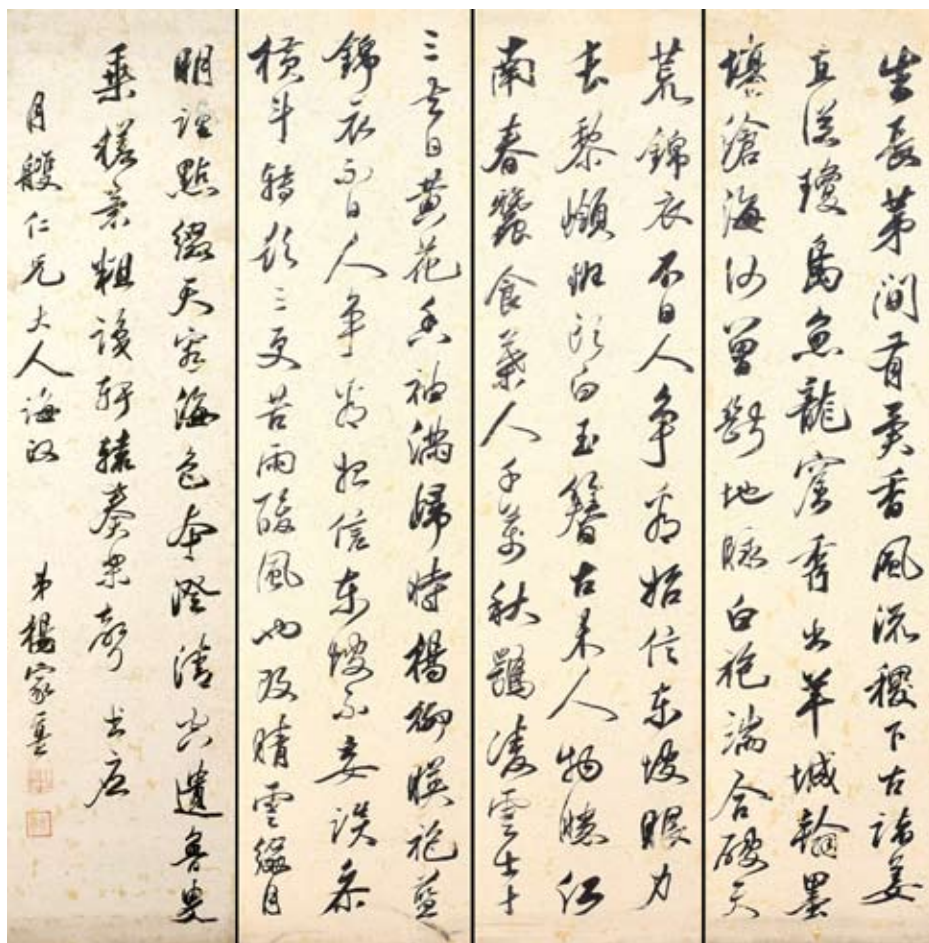 生長茅間有異香風流稷下古諸姜
從瓊島魚龍窟秀出羊城翰墨
場滄海何曾斷地脈白袍端合破天
荒錦衣不日人爭看始信東坡眼力
長黎頰斑頭白玉簪古來人物勝江
南春蠶食葉人千萬秋鶚凌雲士十
三去日黃花香袖滿歸時楊柳映袍藍
錦衣不日人爭看始信東坡不妄談參
橫斗轉欲三更苦雨風也晴雲綴月
明誰點綴天容海色本澄清空遺魯叟
乘桴意粗識軒轅奏樂聲 書應
月艭仁兄大人誨政 弟楊家